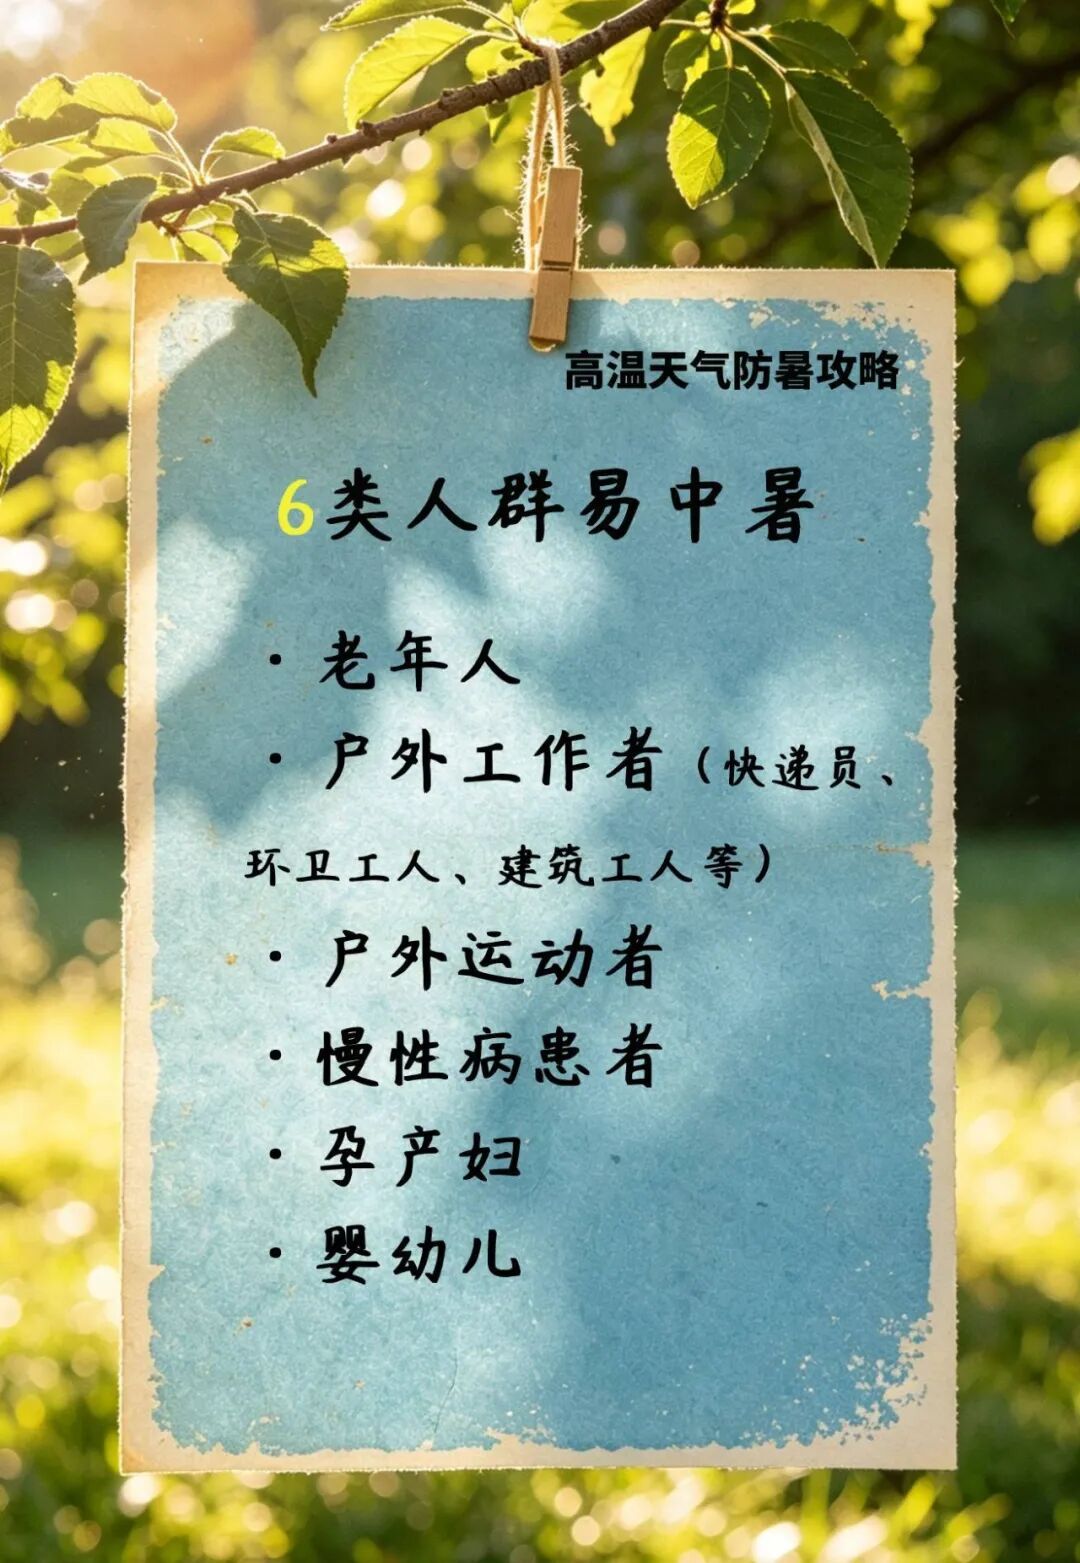 高温天气防暑攻略
6类人群易中暑
· 老年人
· 户外工作者（快递员、
环卫工人、建筑工人等）
· 户外运动者
· 慢性病患者
· 孕产妇
· 婴幼儿